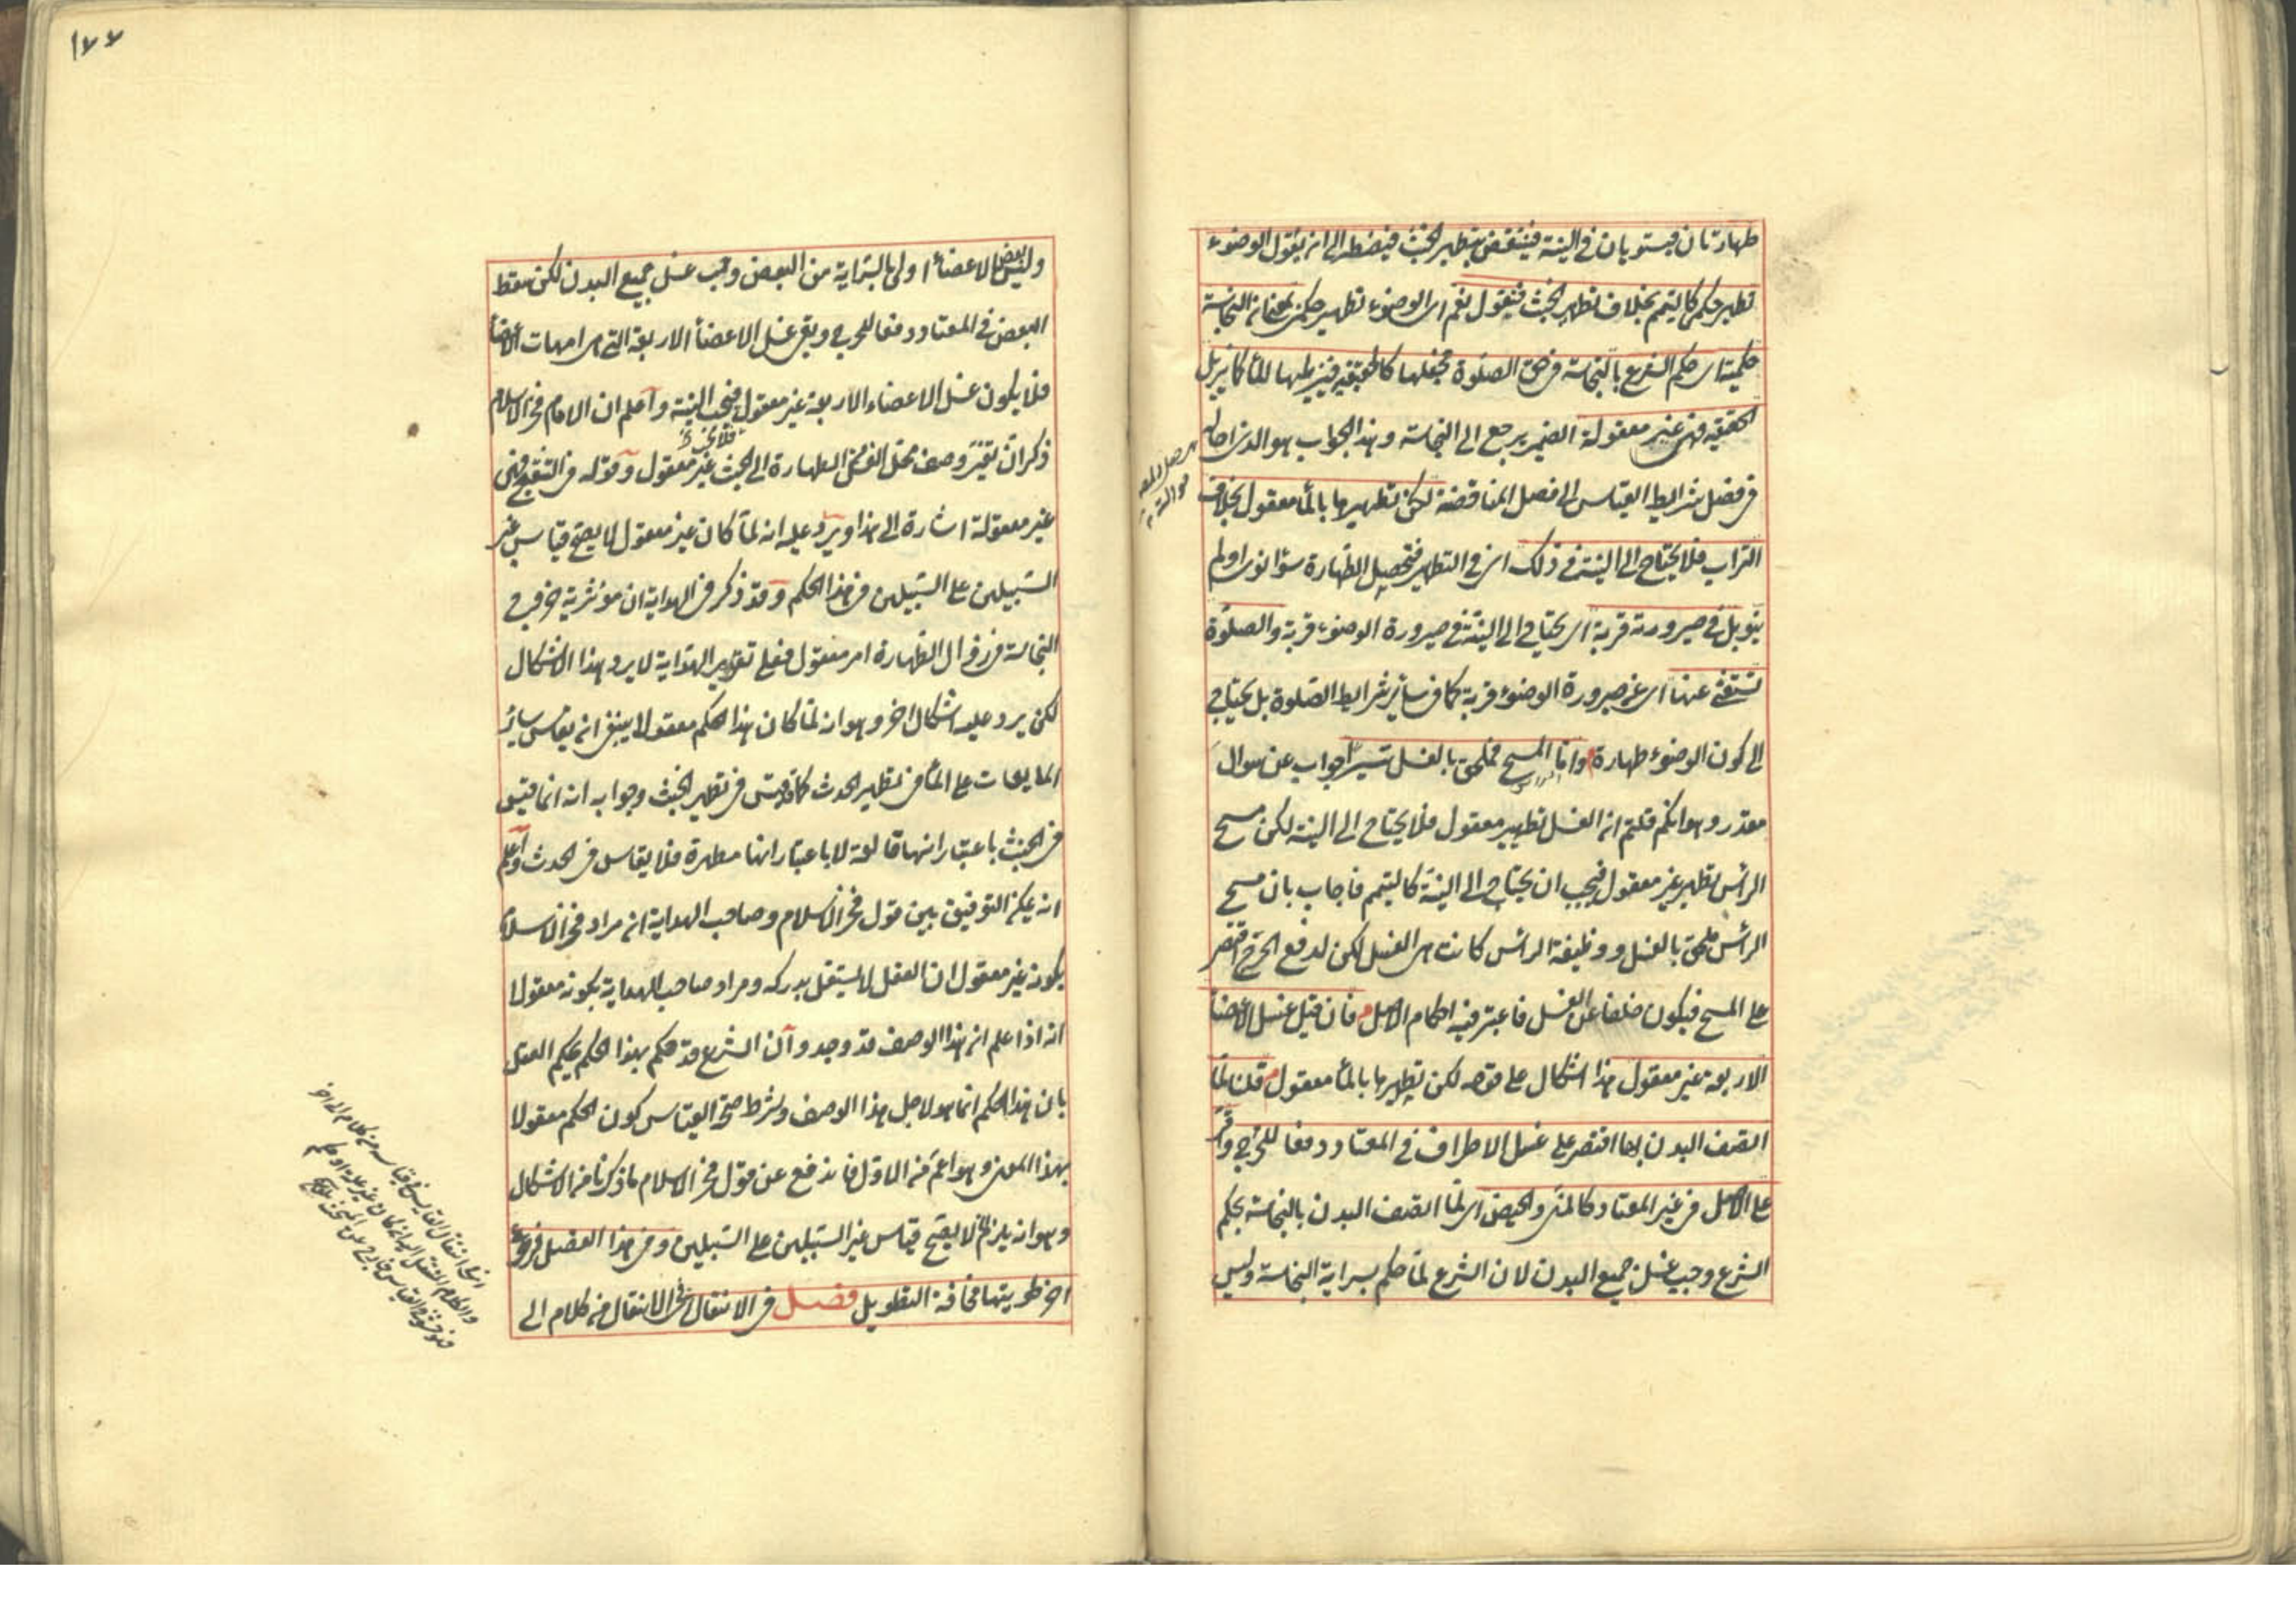 طهارتان فيستويان في النية فينتقض بتطهير الخبث فيضطر الى ان يقول الوضوء
تطهير حكمي كالتيمم بخلاف تطهير الخبث فنقول نعم اى الوضوء تطهير حكمي بمعنى ان النجاسة
حكمية اى حكم الشرع بالنجاسة في حق الصلوة فجعلها كالحقيقية فيزيلها الماء كما يزيل
الحقيقية فهى غير معقولة الضمير يرجع الى النجاسة وهذا الجواب هو الذى احاله
في فصل شرايط القياس الى فصل المناقضة لكن تطهيرها بالماء معقول بخلاف
التراب فلا يحتاج الى النية في ذلك اى في التطهير فتحصيل الطهارة سواء نوى او لم
ينو بل في صيرورته قربة اى يحتاج الى النية في صيرورة الوضوء قربة والصلوة
تستغنى عنها اى عن صيرورة الوضوء قربة كما في سائر شرايط الصلوة بل يحتاج
الى كون الوضوء طهارة واما المسح فملحق بالغسل تيسيرا جواب عن سوال
مقدر وهو انكم قلتم ان الغسل تطهير معقول فلا يحتاج الى النية لكن مسح
الرأس تطهير غير معقول فيجب ان يحتاج الى النية كالتيمم فاجاب بان مسح
الرأس ملحق بالغسل ووظيفة الرأس كانت هى الغسل لكن لدفع الحرج اقتصر
على المسح فيكون خلفا عن الغسل فاعتبر فيه احكام الاصل م فان قيل غسل الاعضاء
الاربعة غير معقول هذا اشكال على قوله لكن تطهيرها بالماء معقول م قلنا لما
اتصف البدن بها اقتصر على غسل الاطراف في المعتاد دفعا للحرج واقر
على الاصل في غير المعتاد كالمنى والحيض اى لما اتصف البدن بالنجاسة بحكم
الشرع وجب غسل جميع البدن لان الشرع لما حكم بسراية النجاسة وليس
١٧٧
وليس بعض الاعضاء اولى بالسراية من البعض وجب غسل جميع البدن لكن سقط
البعض في المعتاد دفعا للحرج وبقى غسل الاعضاء الاربعة التى هى امهات الاعضاء
فلا يكون غسل الاعضاء الاربعة غير معقول فلا يجب النية واعلم ان الامام فخر الاسلام
ذكر ان تغير وصف محل الغسل من الطهارة الى الخبث غير معقول وقوله في التنقيح فهى
غير معقولة اشارة الى هذا ويرد عليه انه لما كان غير معقول لا يصح قياس غير
السبيلين على السبيلين في هذا الحكم وقد ذكر في الهداية ان مؤثرية خروج
النجاسة في زوال الطهارة امر معقول فعلى تقدير الهداية لا يرد هذا الاشكال
لكن يرد عليه اشكال اخر وهو انه لما كان هذا الحكم معقولا ينبغى ان يقاس سائر
المايعات على الماء في تطهير الحدث كما قد قيس في تطهير الخبث وجوابه انه انما قيس
في الخبث باعتبار انها قالعة لا باعتبار انها مطهرة فلا يقاس في الحدث واعلم
انه يمكن التوفيق بين قول فخر الاسلام وصاحب الهداية ان مراد فخر الاسلام
بكونه غير معقول ان العقل لا يستقل بدركه ومراد صاحب الهداية بكونه معقولا
انه اذا علم ان هذا الوصف قد وجد وان الشرع قد حكم بهذا الحكم يحكم العقل
بان هذا الحكم انما هو لاجل هذا الوصف وشرط صحة القياس كون الحكم معقولا
بهذا المعنى وهو اعم من الاول فاندفع عن قول فخر الاسلام ما ذكرنا من الاشكال
وهو انه يلزم ان لا يصح قياس غير السبيلين على السبيلين وفي هذا الفصل فروع
اخر طويتها مخافة التطويل فصل في الانتقال اى الانتقال من كلام الى